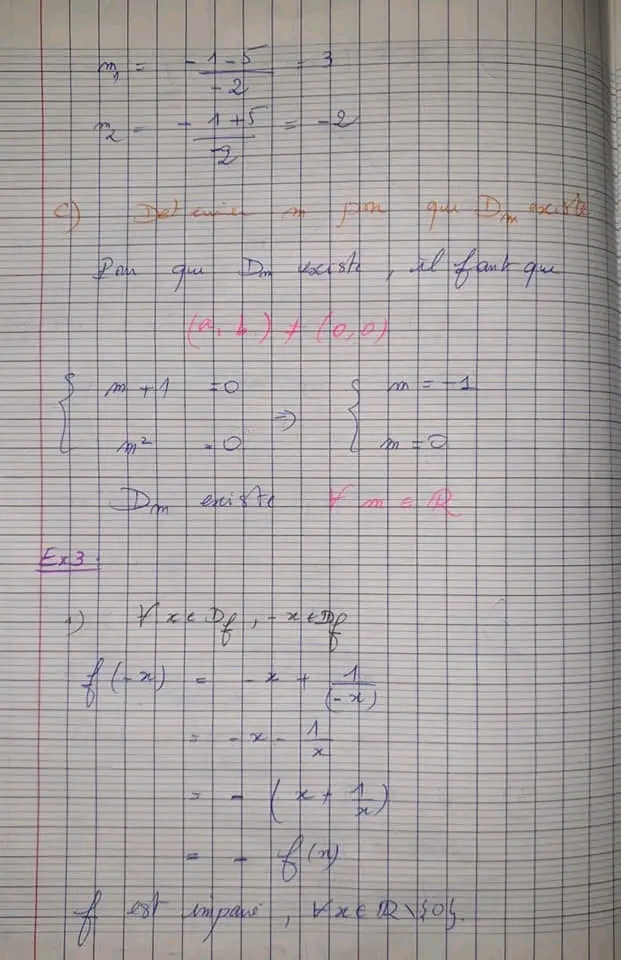 m₁ = (-1-5)/(-2) = 3
m₂ = (-1+5)/(-2) = -2
c) Determier m pour que Dm existe
Pour que Dm existe, il faut que
(a, b) ≠ (0,0)
{ m + 1 = 0 ⇒ { m = -1
{ m² = 0 { m = 0
Dm existe ∀ m ∈ ℝ
Ex3:
1) ∀ x ∈ Df, -x ∈ Df
f(-x) = -x + 1/(-x)
= -x - 1/x
= - (x + 1/x)
= - f(x)
f est impaire, ∀x ∈ ℝ\{0}.